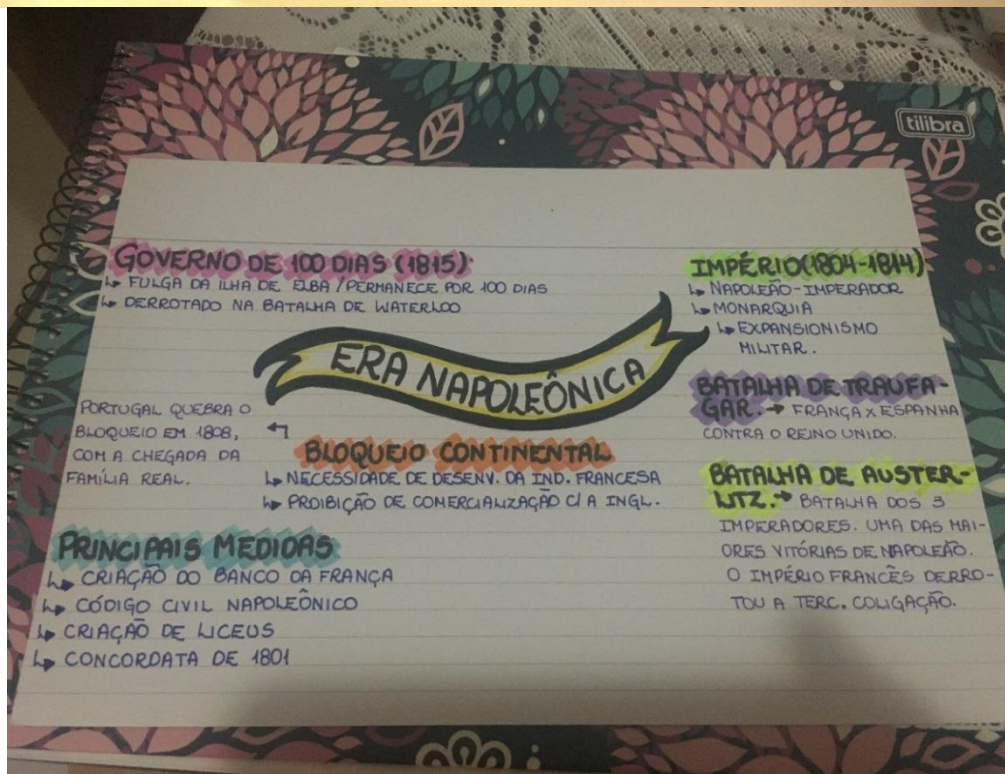 tilibra
GOVERNO DE 100 DIAS (1815)
↳ FULGA DA ILHA DE ELBA / PERMANECE POR 100 DIAS
↳ DERROTADO NA BATALHA DE WATERLOO
ERA NAPOLEÔNICA
PORTUGAL QUEBRA O
BLOQUEIO EM 1808,
COM A CHEGADA DA
FAMÍLIA REAL.
BLOQUEIO CONTINENTAL
↳ NECESSIDADE DE DESENV. DA IND. FRANCESA
↳ PROIBIÇÃO DE COMERCIALIZAÇÃO C/ A INGL.
PRINCIPAIS MEDIDAS
↳ CRIAÇÃO DO BANCO DA FRANÇA
↳ CÓDIGO CIVIL NAPOLEÔNICO
↳ CRIAÇÃO DE LICEUS
↳ CONCORDATA DE 1801
IMPÉRIO (1804-1814)
↳ NAPOLEÃO-IMPERADOR
↳ MONARQUIA
↳ EXPANSIONISMO
MILITAR.
BATALHA DE TRAUFA-
GAR. → FRANÇA X ESPANHA
CONTRA O REINO UNIDO.
BATALHA DE AUSTER-
LITZ. → BATALHA DOS 3
IMPERADORES. UMA DAS MAI-
ORES VITÓRIAS DE NAPOLEÃO.
O IMPÉRIO FRANCÊS DERRO-
TOU A TERC. COLIGAÇÃO.